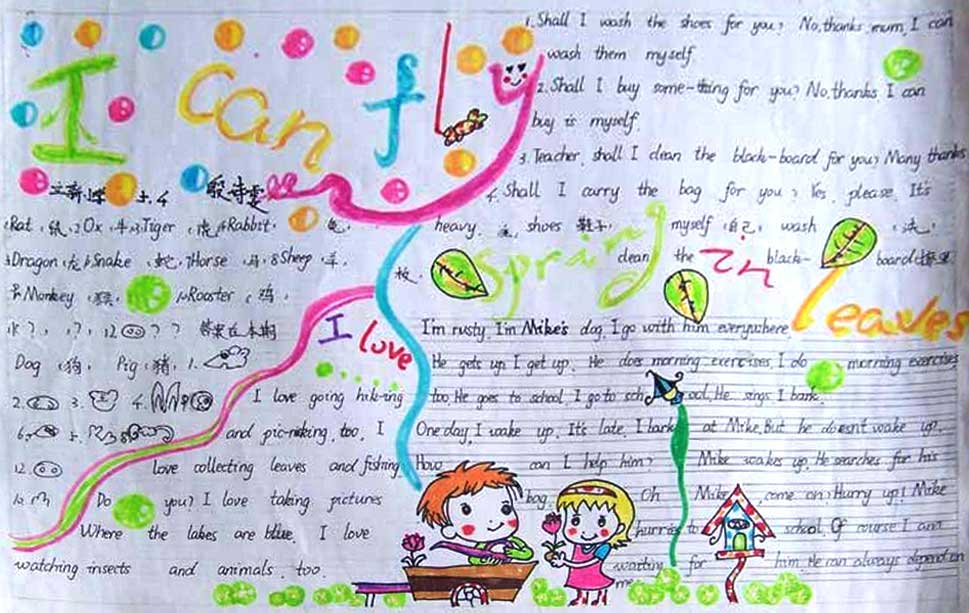 I can fly
1. Shall I wash the shoes for you? No, thanks, mum, I can
wash them myself.
2. Shall I buy some-thing for you? No, thanks I can
buy is myself.
3. Teacher, shall I clean the black-board for you? Many thanks
4. Shall I carry the bag for you? Yes, please. It's
heavy. 重 shoes 鞋子, myself 自己, wash 洗,
clean the black-board
板
Rat, 鼠, 2 Ox, 牛, 3 Tiger, 虎, 4 Rabbit, 兔,
5 Dragon, 龙, 6 Snake, 蛇, 7 Horse, 马, 8 Sheep, 羊,
9 Monkey, 猴, 10 Rooster, 鸡,
12 ? ?
Dog, 狗, Pig, 猪, 1.
2. 3. 4.
6. 5. 8
12.
10.
Spring in leaves
I love
I love going hik-ing
and pic-nicking, too, I
love collecting leaves and fishing.
Do you? I love taking pictures
Where the lakes are blue. I love
watching insects and animals, too.
I'm rusty. I'm Mike's dog. I go with him everywhere
He gets up, I get up. He does morning exercises, I do morning exercises
too. He goes to school, I go to school. He sings, I bark.
One day, I wake up. It's late. I bark at Mike. But he doesn't wake up.
How can I help him? Mike wakes up. He searches for his
bag. Oh Mike come on! Hurry up! Mike
hurries to school. Of course I am
waiting for him. He can always depend on
me.